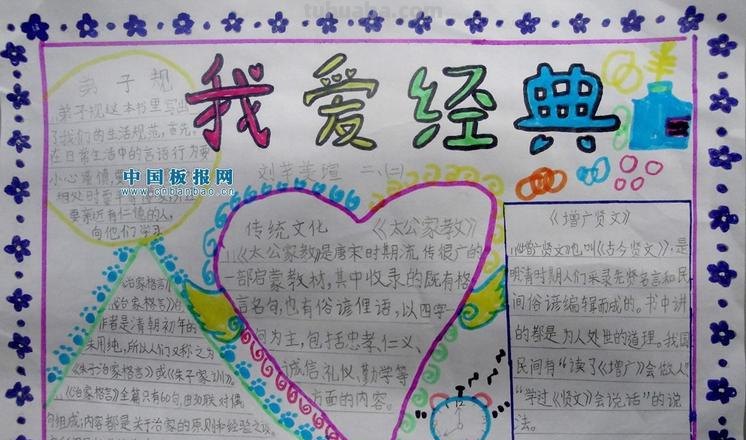 tuhuaba.com
我爱经典
弟子规
弟子规这本书里写出
了我们的生活规范,首先,
在日常生活中的言语行为要
小心谨慎,
要亲近有仁德的人,
向他们学习
中国板报网
www.cnbanbao.cn
二、(二)
传统文化 《太公家教》
《太公家教》是唐宋时期流传很广的
一部启蒙教材,其中收录的既有格
言名句,也有俗谚俚语,以四字
问为主,包括忠孝、仁义、
诚信、礼仪、勤学等
方面的内容。
《增广贤文》
《增广贤文》也叫《古今贤文》,是
明清时期人们采录先贤名言和民
间俗谚编辑而成的。书中讲
的都是为人处世的道理。我国
民间有“读了《增广》会做人”
“学过《贤文》会说话”的说
法。
《治家格言》
《治家格言》的
作者是清朝初年的
朱用纯,所以人们又称之为
《朱子治家格言》或《朱子家训》。
《治家格言》全篇只有60句,由为联对偶
句组成,内容都是关于治家的原则和经验之谈。